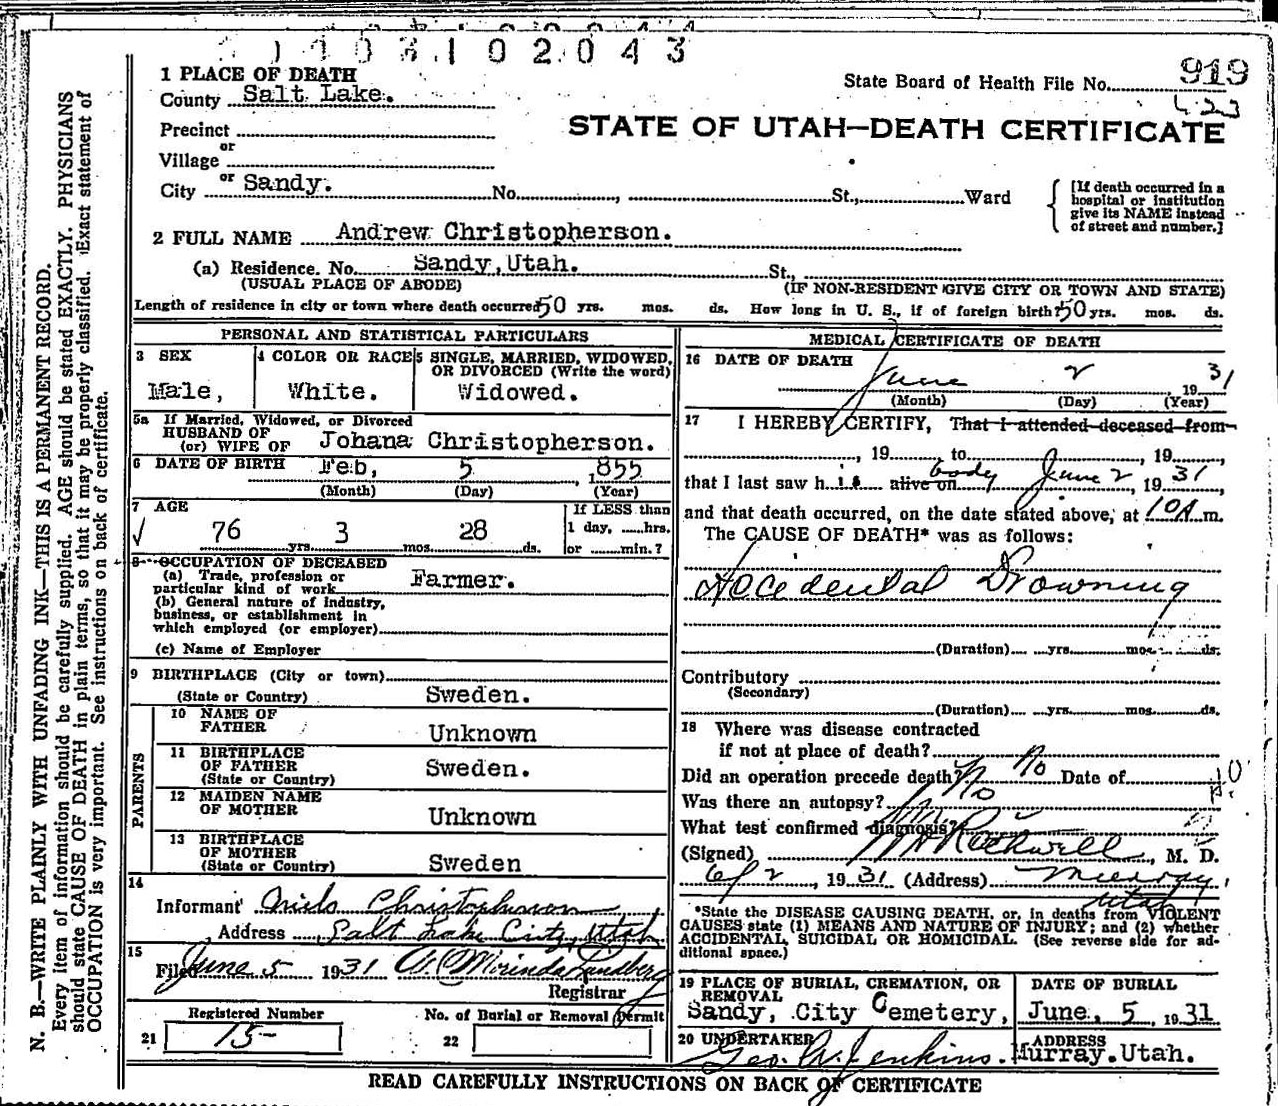 3 1 0 2 0 4 3
1 PLACE OF DEATH
State Board of Health File No. 919
County Salt Lake.
423
Precinct
STATE OF UTAH—DEATH CERTIFICATE
or
Village
or
City Sandy. No. , St., Ward
[If death occurred in a hospital or institution give its NAME instead of street and number.]
2 FULL NAME Andrew Christopherson.
(a) Residence. No. Sandy, Utah. St.,
(USUAL PLACE OF ABODE) (IF NON-RESIDENT GIVE CITY OR TOWN AND STATE)
Length of residence in city or town where death occurred 50 yrs. mos. ds. How long in U. S., if of foreign birth? 50 yrs. mos. ds.
PERSONAL AND STATISTICAL PARTICULARS
3 SEX
Male,
4 COLOR OR RACE
White.
5 SINGLE, MARRIED, WIDOWED,
OR DIVORCED (Write the word)
Widowed.
5a If Married, Widowed, or Divorced
HUSBAND OF
(or) WIFE OF Johana Christopherson.
6 DATE OF BIRTH Feb, 5 , 1855
(Month) (Day) (Year)
7 AGE
76 yrs. 3 mos. 28 ds.
If LESS than
1 day, ......hrs.
or ........min.?
8 OCCUPATION OF DECEASED
(a) Trade, profession or
particular kind of work Farmer.
(b) General nature of industry,
business, or establishment in
which employed (or employer)
(c) Name of Employer
9 BIRTHPLACE (City or town)
(State or Country) Sweden.
PARENTS
10 NAME OF
FATHER Unknown
11 BIRTHPLACE
OF FATHER Sweden.
(State or Country)
12 MAIDEN NAME
OF MOTHER Unknown
13 BIRTHPLACE
OF MOTHER
(State or Country) Sweden
14
Informant Niels Christopherson
Address Salt Lake City, Utah
15
Filed June 5 1931 A. Morinda Lundberg
Registrar
Registered Number
21 15-
No. of Burial or Removal Permit
22
MEDICAL CERTIFICATE OF DEATH
16 DATE OF DEATH
June 2 1931
(Month) (Day) (Year)
17 I HEREBY CERTIFY, That I attended deceased from
, 19 to , 19 ,
that I last saw h is alive on body June 2, 1931,
and that death occurred, on the date stated above, at 10A m.
The CAUSE OF DEATH* was as follows:
Accidental Drowning
(Duration) yrs. mos. ds.
Contributory
(Secondary)
(Duration) yrs. mos. ds.
18 Where was disease contracted
if not at place of death?
Did an operation precede death? No No Date of
Was there an autopsy? No
What test confirmed diagnosis?
(Signed) Rothwell, M. D.
6/2, 1931 (Address) Murray,
Utah
*State the DISEASE CAUSING DEATH, or, in deaths from VIOLENT
CAUSES state (1) MEANS AND NATURE OF INJURY; and (2) whether
ACCIDENTAL, SUICIDAL OR HOMICIDAL. (See reverse side for ad-
ditional space.)
19 PLACE OF BURIAL, CREMATION, OR
REMOVAL
Sandy, City Cemetery,
DATE OF BURIAL
June, 5 , 1931
20 UNDERTAKER
Geo. A. Jenkins.
ADDRESS
Murray. Utah.
READ CAREFULLY INSTRUCTIONS ON BACK OF CERTIFICATE
N. B.—WRITE PLAINLY WITH UNFADING INK—THIS IS A PERMANENT RECORD.
Every item of information should be carefully supplied. AGE should be stated EXACTLY. PHYSICIANS
should state CAUSE OF DEATH in plain terms, so that it may be properly classified. Exact statement of
OCCUPATION is very important. See instructions on back of certificate.